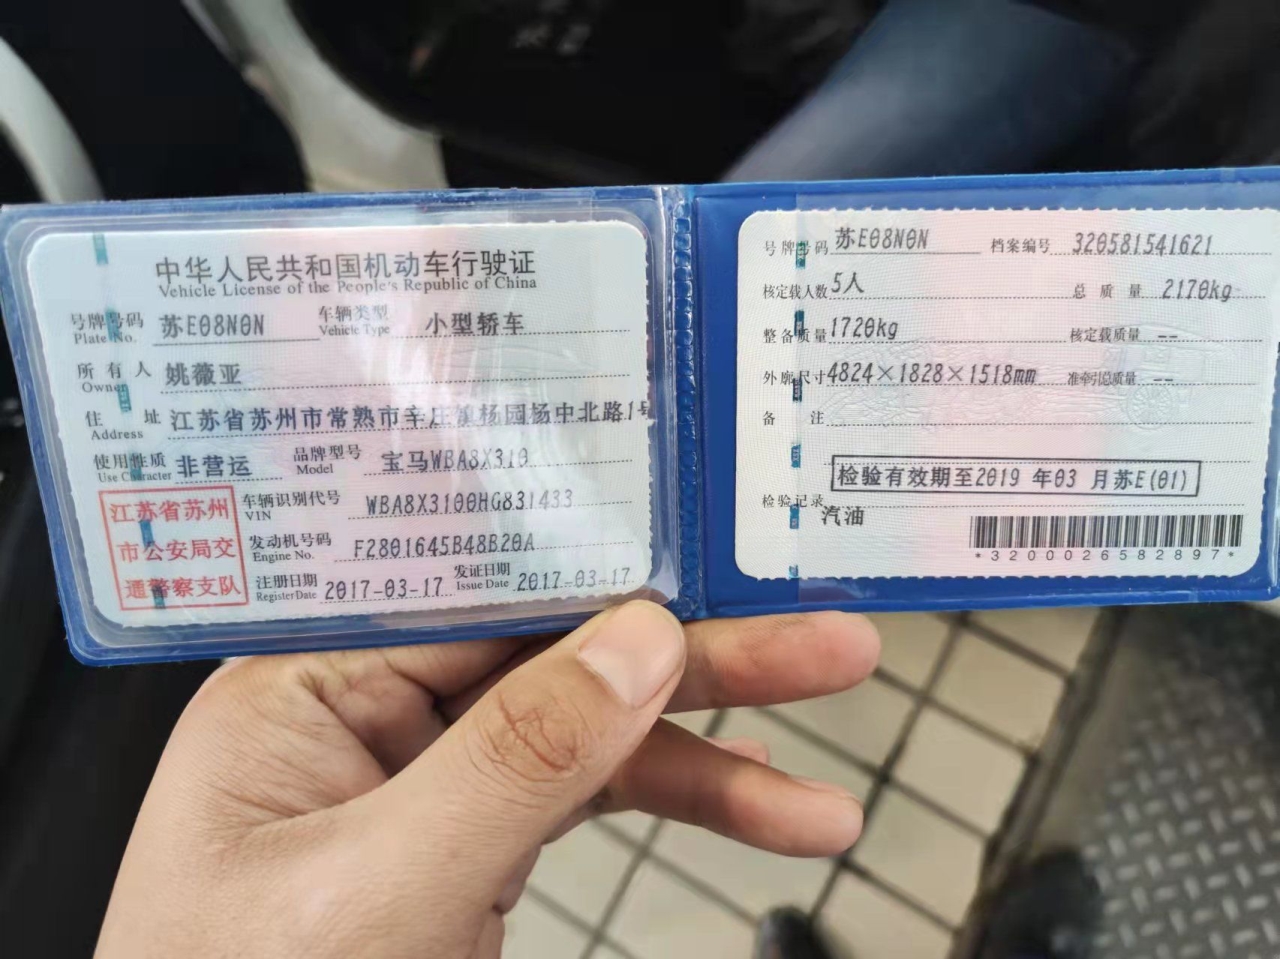 中华人民共和国机动车行驶证
Vehicle License of the People's Republic of China
号牌号码 苏E08N0N 车辆类型 小型轿车
Plate No. Vehicle Type
所有人 姚薇亚
Owner
住址 江苏省苏州市常熟市辛庄镇杨园杨中北路1号
Address
使用性质 非营运 品牌型号 宝马WBA8X310
Use Character Model
江苏省苏州
市公安局交
通警察支队
车辆识别代号 WBA8X3100HG831433
VIN
发动机号码 F2801645B48B20A
Engine No.
注册日期 2017-03-17 发证日期 2017-03-17
Register Date Issue Date
号牌号码 苏E08N0N 档案编号 320581541621
核定载人数 5人 总质量 2170kg
整备质量 1720kg 核定载质量 --
外廓尺寸 4824×1828×1518mm 准牵引总质量 --
备注
检验有效期至2019 年03 月苏E(01)
检验记录
汽油
*3200026582897*